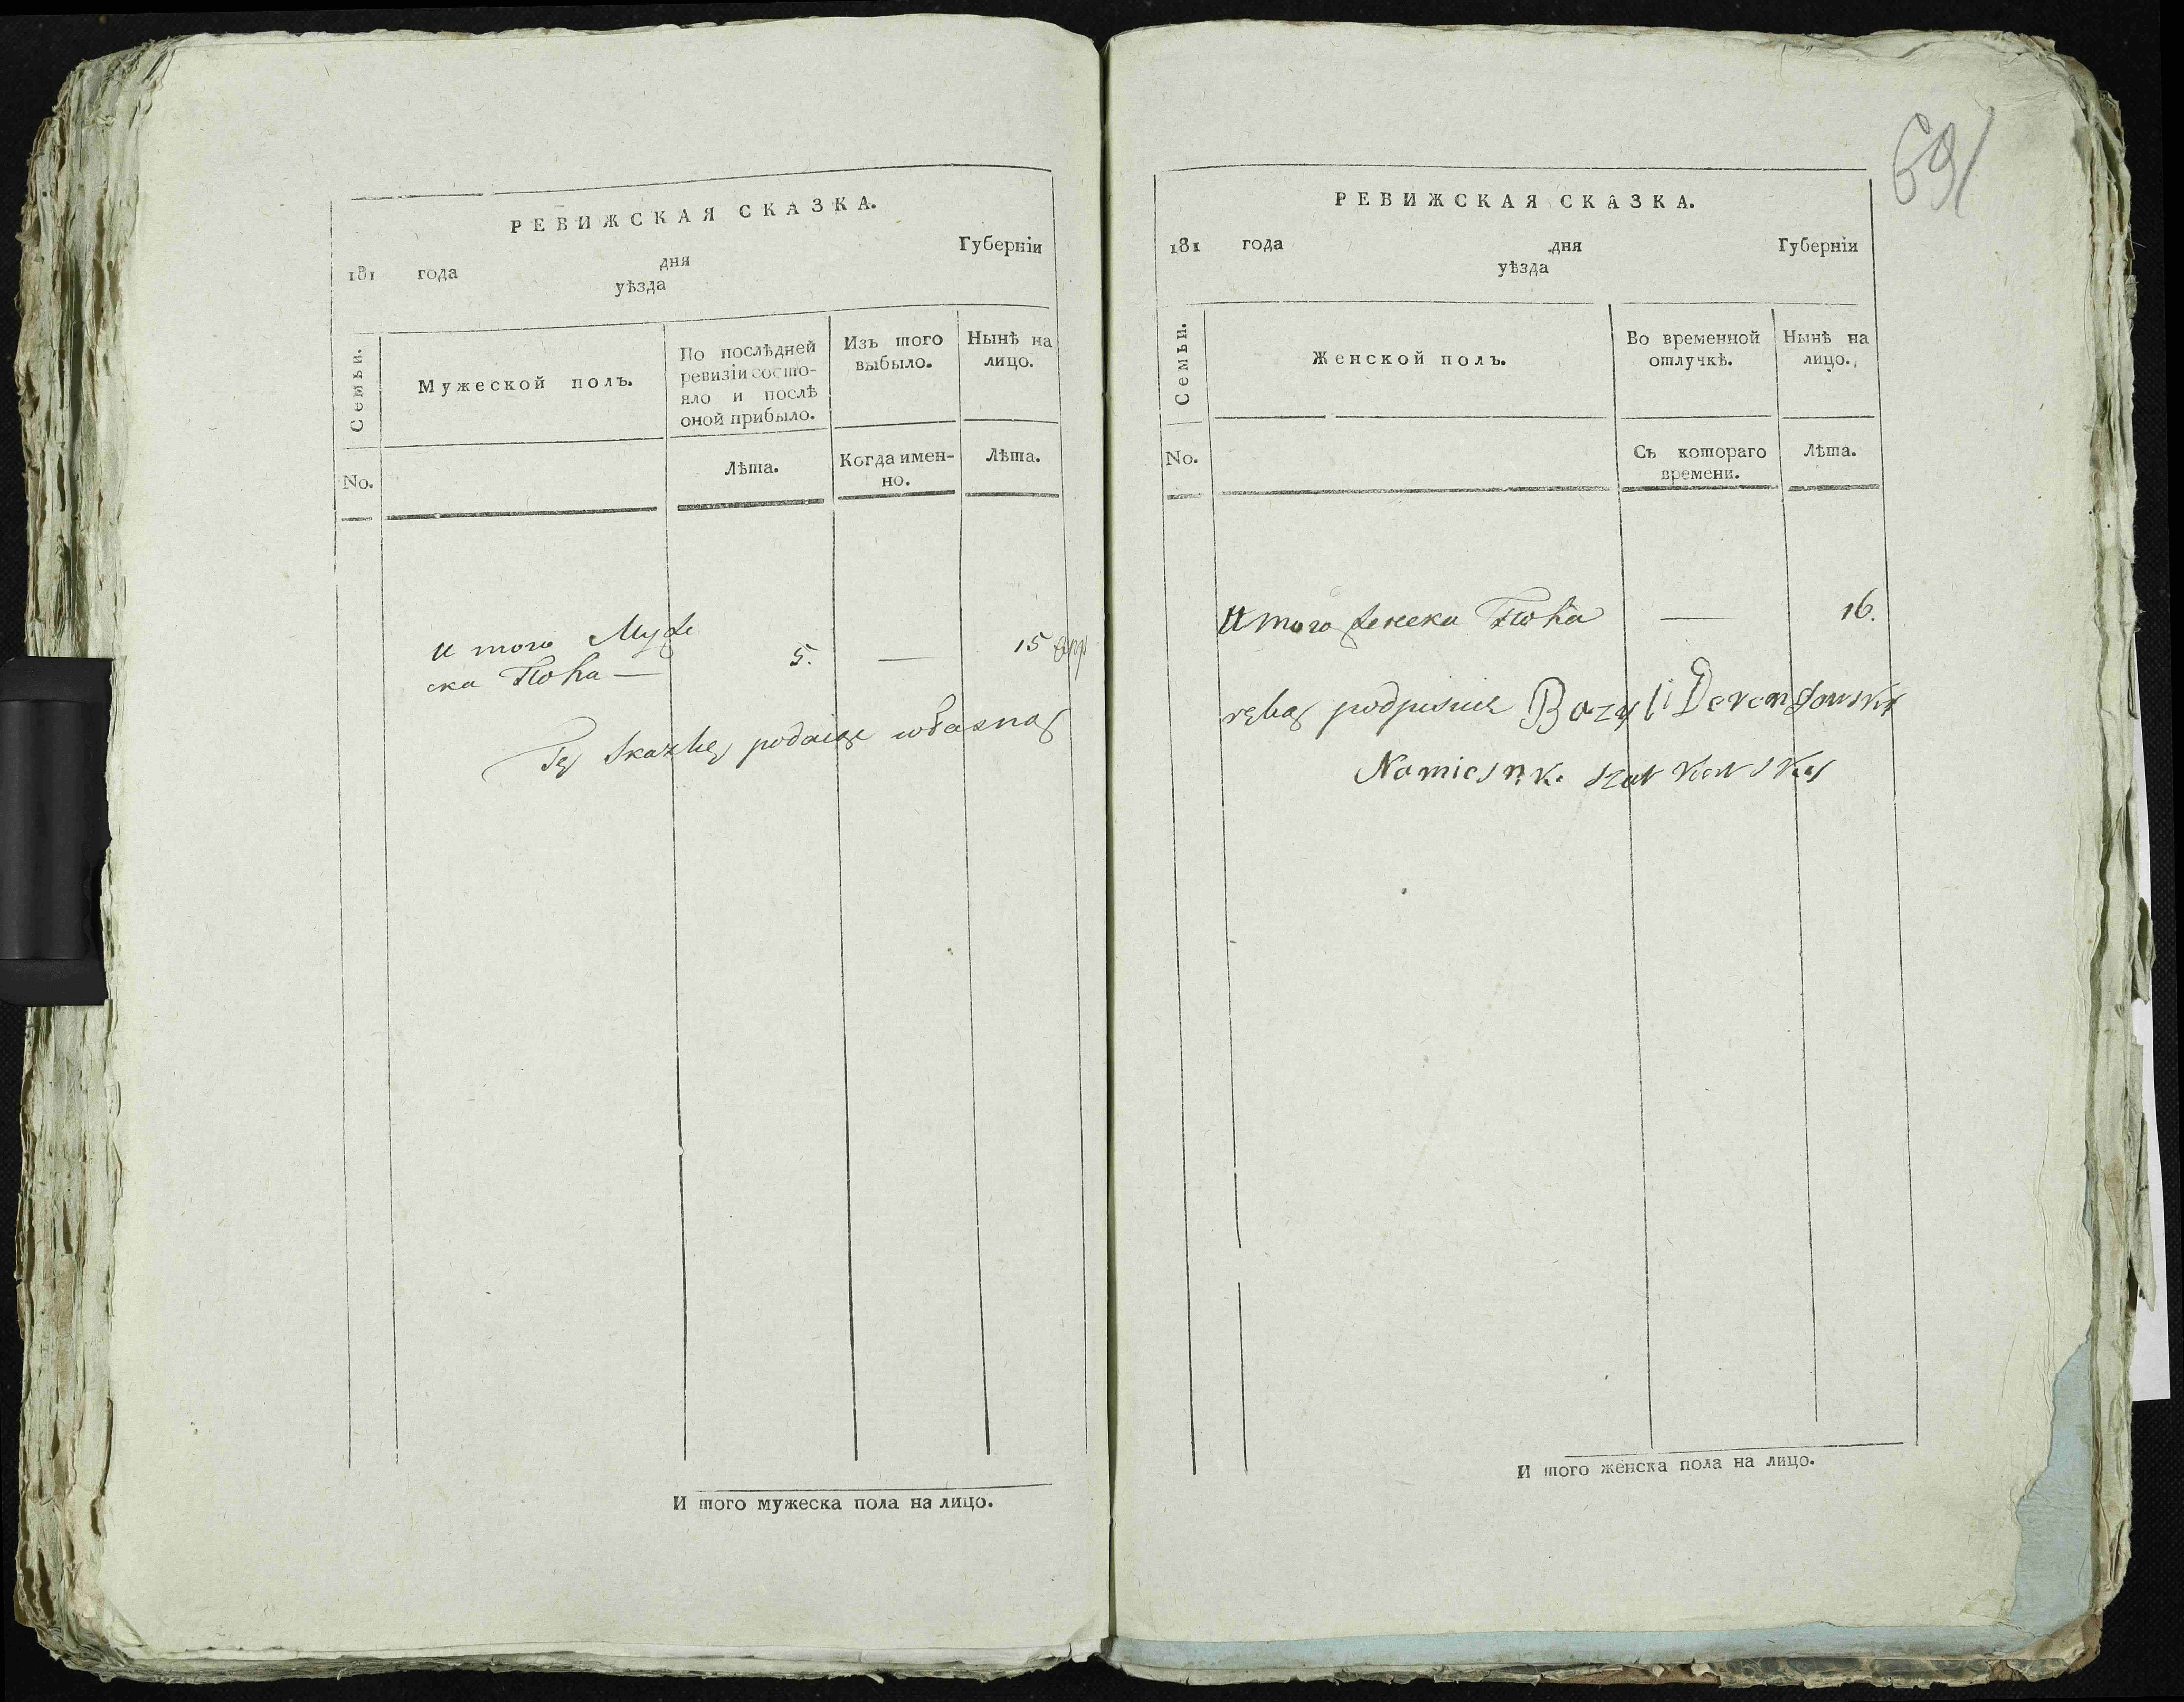 РЕВИЖСКАЯ СКАЗКА.
181 года дня Губерніи
уѣзда
Семьи.
Мужеской полъ.
По послѣдней ревизіи состо-
яло и послѣ
оной прибыло.
Изъ того
выбыло.
Нынѣ на
лицо.
No.
Лѣта.
Когда имен-
но.
Лѣта.
И того Муже
ска Пола — 5. — 15
Tę skazkę podaięc własną
И того мужеска пола на лицо.
69
РЕВИЖСКАЯ СКАЗКА.
181 года дня Губерніи
уѣзда
Семьи.
Женской полъ.
Во временной
отлучкѣ.
Нынѣ на
лицо.
No.
Съ котораго
времени.
Лѣта.
Итого женска Пола — 16.
ręką podpisuie Bazyli
И того женска пола на лицо.